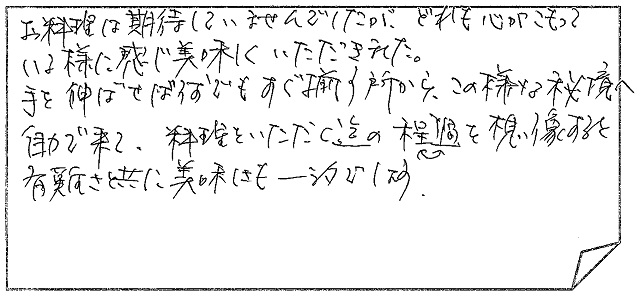 お料理は期待していませんでしたが、どれも心がこもって
いる様に感じ美味しくいただきました。
手を伸ばせば何でもすぐ揃う所から、この様な秘境へ
自力で来て、料理をいただく迄の程過を想像すると
有難さと共に美味しさも一汐でした。